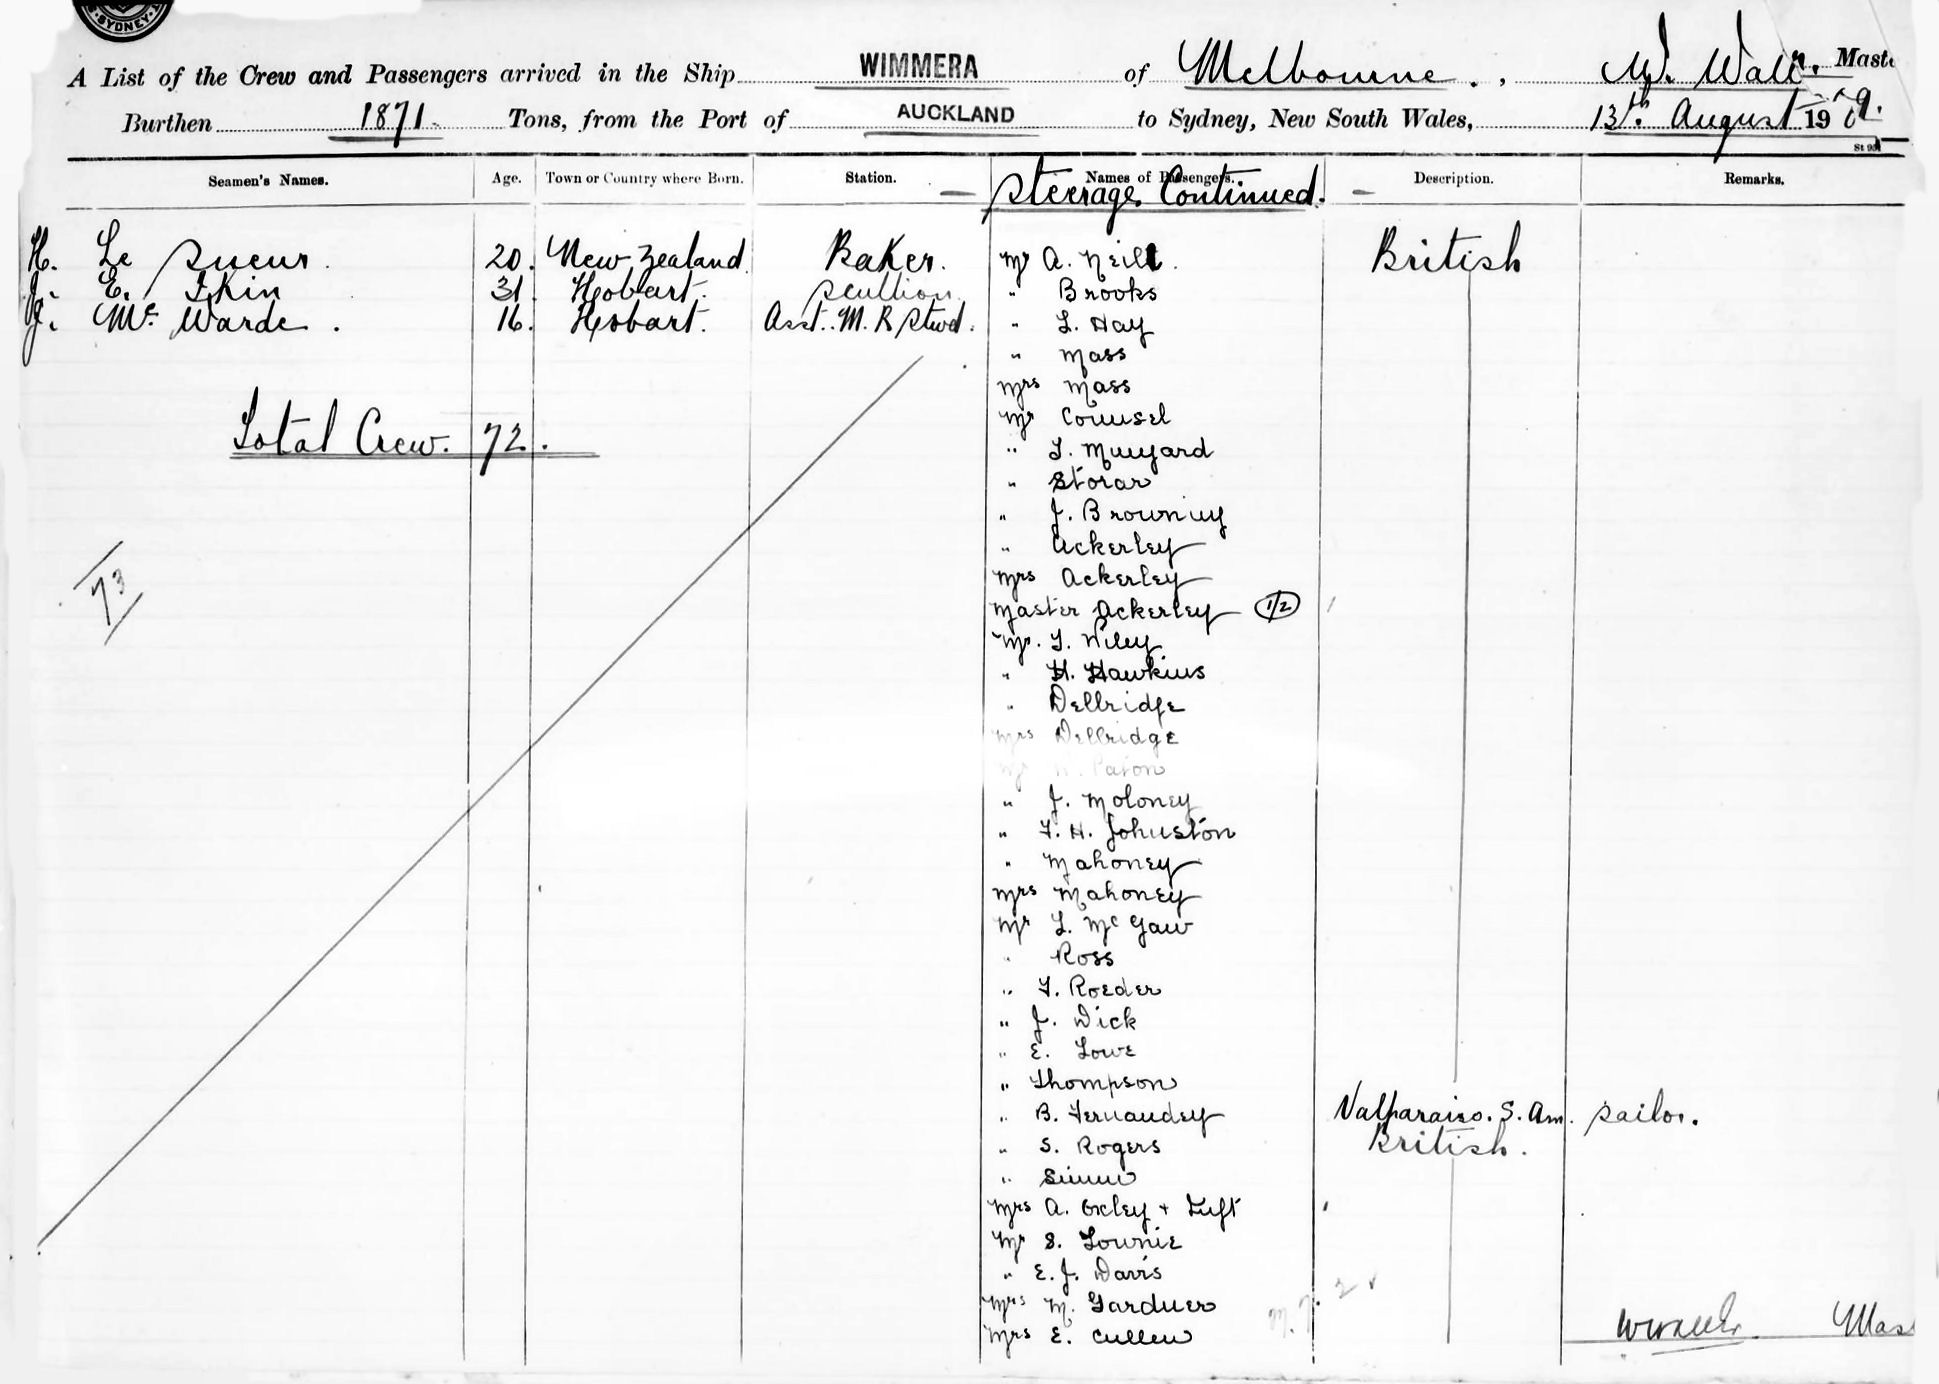 SYDNEY
A List of the Crew and Passengers arrived in the Ship WIMMERA of Melbourne., W. Waller. Maste
Burthen 1871. Tons, from the Port of AUCKLAND to Sydney, New South Wales, 13th. August 1909.
Seamen's Names. Age. Town or Country where Born. Station. Names of Passengers. Description. Remarks.
Steerage. Continued.
H. Le Sueur. 20. New Zealand. Baker. Mr A. Neill. British
J. E. Ikin 31. Hobart. Scullion. " Brooks
J. Mc Warde. 16. Hobart. Asst. M. R Stwd. " L. Hay
" Mass
Mrs Mass
Mr Counsel
Total Crew. 72. " T. Munyard
" Storar
" J. Browning
" Ackerley
73 Mrs Ackerley
Master Ackerley 1/2
Mr. T. Wiley
" H. Hawkins
" Dellridge
Mrs Dellridge
Mr W. Paton
" J. Moloney
" F. H. Johnston
" Mahoney
Mrs Mahoney
Mr L. Mc Gaw
" Ross
" F. Roeder
" J. Dick
" E. Lowe
" Thompson
" B. Fernandey Valparaiso. S. Am. Sailor.
" S. Rogers British.
"
Mrs A. Oxley + Inft
Mr S. Townie
" E. J. Davis
Mrs M. Gardner
Mrs E. Cullen WWaller. Mas